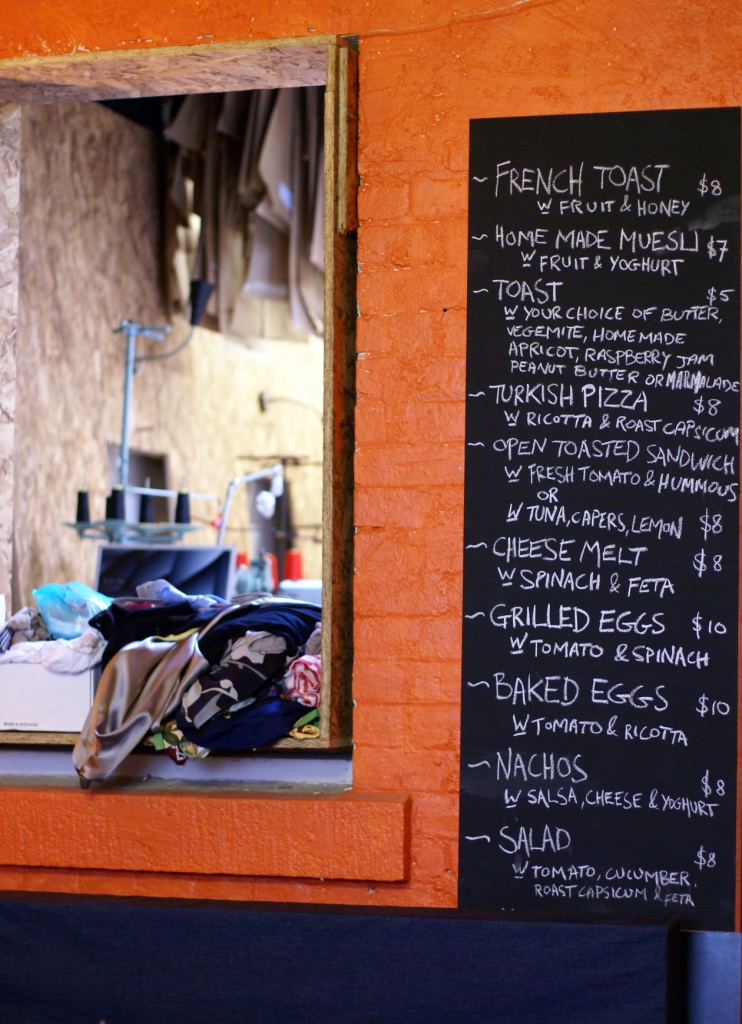 ~ FRENCH TOAST $8
W FRUIT & HONEY
~ HOME MADE MUESLI $7
W FRUIT & YOGHURT
~ TOAST $5
W YOUR CHOICE OF BUTTER,
VEGEMITE, HOMEMADE
APRICOT, RASPBERRY JAM
PEANUT BUTTER OR MARMALADE
~ TURKISH PIZZA $8
W RICOTTA & ROAST CAPSICUM
~ OPEN TOASTED SANDWICH
W FRESH TOMATO & HUMMOUS
OR
W TUNA, CAPERS, LEMON $8
~ CHEESE MELT $8
W SPINACH & FETA
~ GRILLED EGGS $10
W TOMATO & SPINACH
~ BAKED EGGS $10
W TOMATO & RICOTTA
~ NACHOS $8
W SALSA, CHEESE & YOGHURT
~ SALAD $8
W TOMATO, CUCUMBER.
ROAST CAPSICUM & FETA